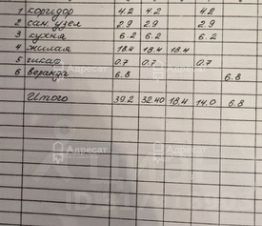 1 коридор 4.2 4.2 4.2
2 сан. узел 2.9 2.9 2.9
3 кухня 6.2 6.2 6.2
4 жилая 18.4 18.4 18.4
5 шкаф 0.7 0.7 0.7
6 веранда 6.8 6.8
Итого 39.2 32.40 18.4 14.0 6.8
Адресат Адресат
Адресат Адресат